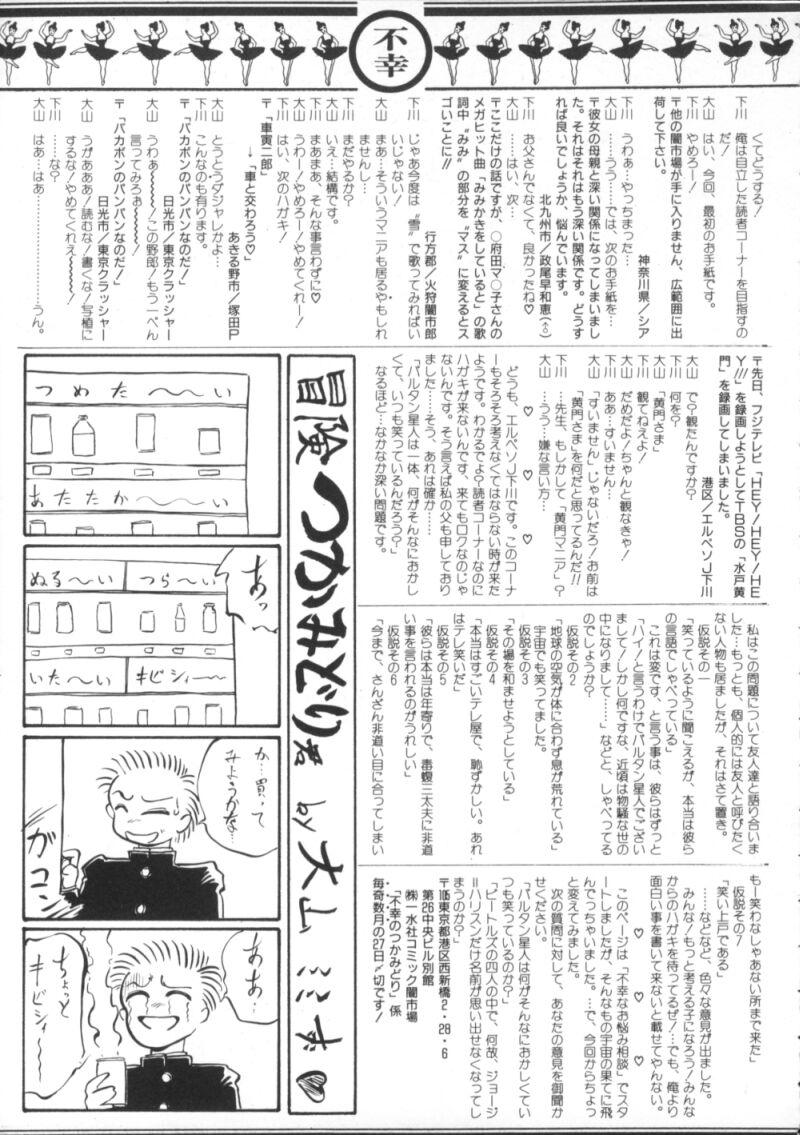 不幸
くてどうする！
下川　俺は自立した読者コーナーを目指すの
だ！
大山　はい、今回、最初のお手紙です。
下川　やめろー！
〒他の闇市場が手に入りません、広範囲に出
荷して下さい。
神奈川県／シア
下川　うわぁ…やっちまった…
大山　……うう……では、次のお手紙を…
〒彼女の母親と深い関係になってしまいまし
た。それはそれはもう深い関係です。どうす
れば良いでしょうか、悩んでいます。
北九州市／政尾早和恵(↑○)
下川　お父さんでなくて、良かったね♡
大山　……はい、次…
〒ここだけの話ですが、○府田マ○子さんの
メガヒット曲「みみかきをしていると」の歌
詞中〝みみ〟の部分を〝マス〟に変えるとス
ゴいことに!!
行方郡／火狩闇市郎
下川　じゃあ今度は〝雪〟で歌ってみればい
いじゃない！
大山　まあ…そういうマニアも居るやもしれ
ませんし…
下川　まだやるか？
大山　いえ…結構です。
下川　まあまあ、そんな事言わずに♡
大山　うわー！やめろー！やめてくれー！
下川　はい、次のハガキ！
〒「車寅二郎」
↓車と交わろう♡」
あきる野市／塚田P
大山　とうとうダジャレかよ…
下川　こんなのも有ります。
〒「バカボンのバンバンなのだ！」
日光市／東京クラッシャー
大山　うわぁ〜〜〜！この野郎！もう一ぺん
言ってみろぉ〜〜〜！
〒「バカボンのパンパンなのだ！」
日光市／東京クラッシャー
大山　うがあああ！読むな！書くな！写植に
するな！やめてくれぇ〜〜！
下川　……な？
大山　はあ…はあ……………うん。
〒先日、フジテレビ「HEY！HEY！HE
Y!!!」を録画しようとしてTBSの「水戸黄
門」を録画してしまいました。
港区／エルベソJ下川
大山　で？観たんですか？
下川　何を？
大山　「黄門さま」
下川　観てねえよ！
大山　だめだよ！ちゃんと観なきゃ！
下川　ああ…すいません…
大山　「すいません」じゃないだろ！お前は
「黄門さま」を何だと思ってるんだ!!
下川　…先生、もしかして「黄門マニア」？
大山　…うう…嫌な言い方…
♡　♡　♡
どうも、エルベソJ下川です。このコーナ
ーもそろそろ考えなくてはならない時が来た
ようです。わかるでしょ？読者コーナーなのに
ハガキが来ないんです。来てもロクなのじゃ
ないんです。そう言えば私の父も申しており
ました……そう、あれは確か……
「バルタン星人は一体、何がそんなにおかし
くて、いつも笑っているんだろう？」
なるほど…なかなか深い問題です。
私はこの問題について友人達と語り合いま
した…もっとも、個人的には友人と呼びたく
ない人物も居ましたが、それはさて置き。
仮説その一
「笑っているように聞こえるが、本当は彼ら
の言語でしゃべっている」
これは変です、と言う事は、彼らはずっと
「ハイ！と言うわけでバルタン星人でござい
まして！しかし何ですな、近頃は物騒な世の
中になりまして……」などと、しゃべってる
のでしょうか？
仮説その2
「地球の空気が体に合わず息が荒れている」
宇宙でも笑ってました。
仮説その3
「その場を和ませようとしている」
仮説その4
「本当はすごいテレ屋で、恥ずかしい。あれ
はテレ笑いだ」
仮説その5
「彼らは本当は年寄りで、毒蝮三太夫に非道
い事を言われるのがうれしい」
仮説その6
「今まで、さんざん非道い目に合ってしまい
もー笑わなしゃあない所まで来た」
仮説その7
「笑い上戸である」
……などなど、色々な意見が出ました。
みんな！もっと考える子になろう！みんな
からのハガキを待ってるぜ！…でも、俺より
面白い事を書いて来ないと載せてやんない。
♡　♡　♡
このページは「不幸なお悩み相談」でスタ
ートしましたが、そんなもの宇宙の果てに飛
んでっちゃいました。…で、今回からちょっ
と変えてみました。
次の質問に対して、あなたの意見を御聞か
せください。
「バルタン星人は何がそんなにおかしくてい
つも笑っているのか？」
「ビートルズの四人の中で、何故、ジョージ
＝ハリスンだけ名前が思い出せなくなってし
まうのか？」
〒105東京都港区西新橋2・28・6
第26中央ビル別館
㈱一水社コミック闇市場
「不幸のつかみどり」係
毎奇数月の27日〆切です！
冒険つかみどり君 by 大山ミミず♡
つめた〜〜い
あたたか〜〜い
あっ〜
つら〜い
ぬる〜い
キビシィー
いた〜い
か…買って
みようかな…
ガコン
ああ…
ちょっと
キビシィー